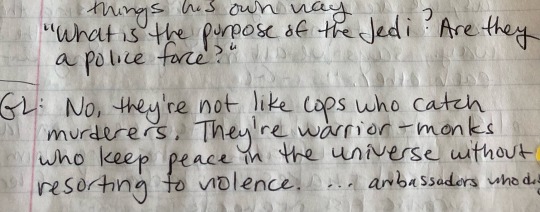 things his own way
"What is the purpose of the Jedi? Are they
a police force?"
GL: No, they're not like cops who catch
murderers. They're warrior-monks
who keep peace in the universe without
resorting to violence. ... ambassadors who